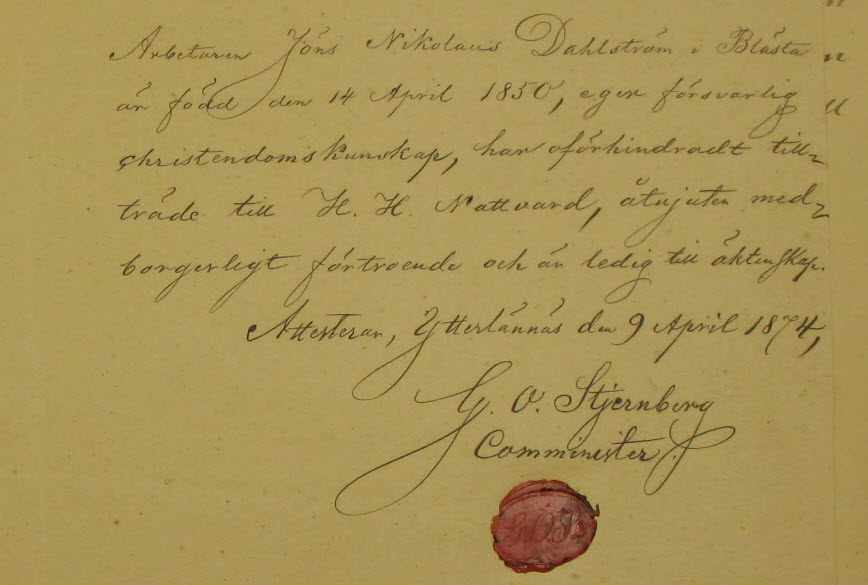 Arbetaren Jöns Nikolaus Dahlström i Blästa
är född den 14 April 1850, eger försvarlig
christendomskunskap, har oförhindradt till-
träde till H. H. Nattvard, åtnjuter med-
borgerligt förtroende och är ledig till äktenskap.
Attesterar, Ytterlännäs den 9 April 1874,
G. O. Stjernberg
Comminister.
G.O.S.